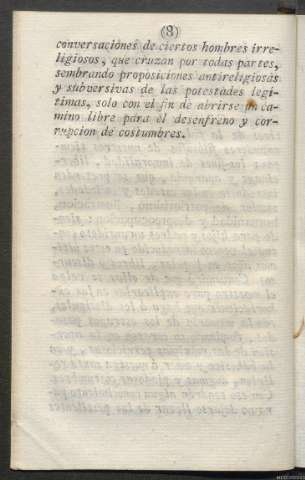 (8)
conversaciónes de ciertos hombres irre-
ligiosos, que cruzan por todas partes,
sembrando proposiciones antireligiosas
y subversivas de las potestades legi-
timas, solo con el fin de abrirse un ca-
mino libre para el desenfreno y cor-
rupcion de costumbres.